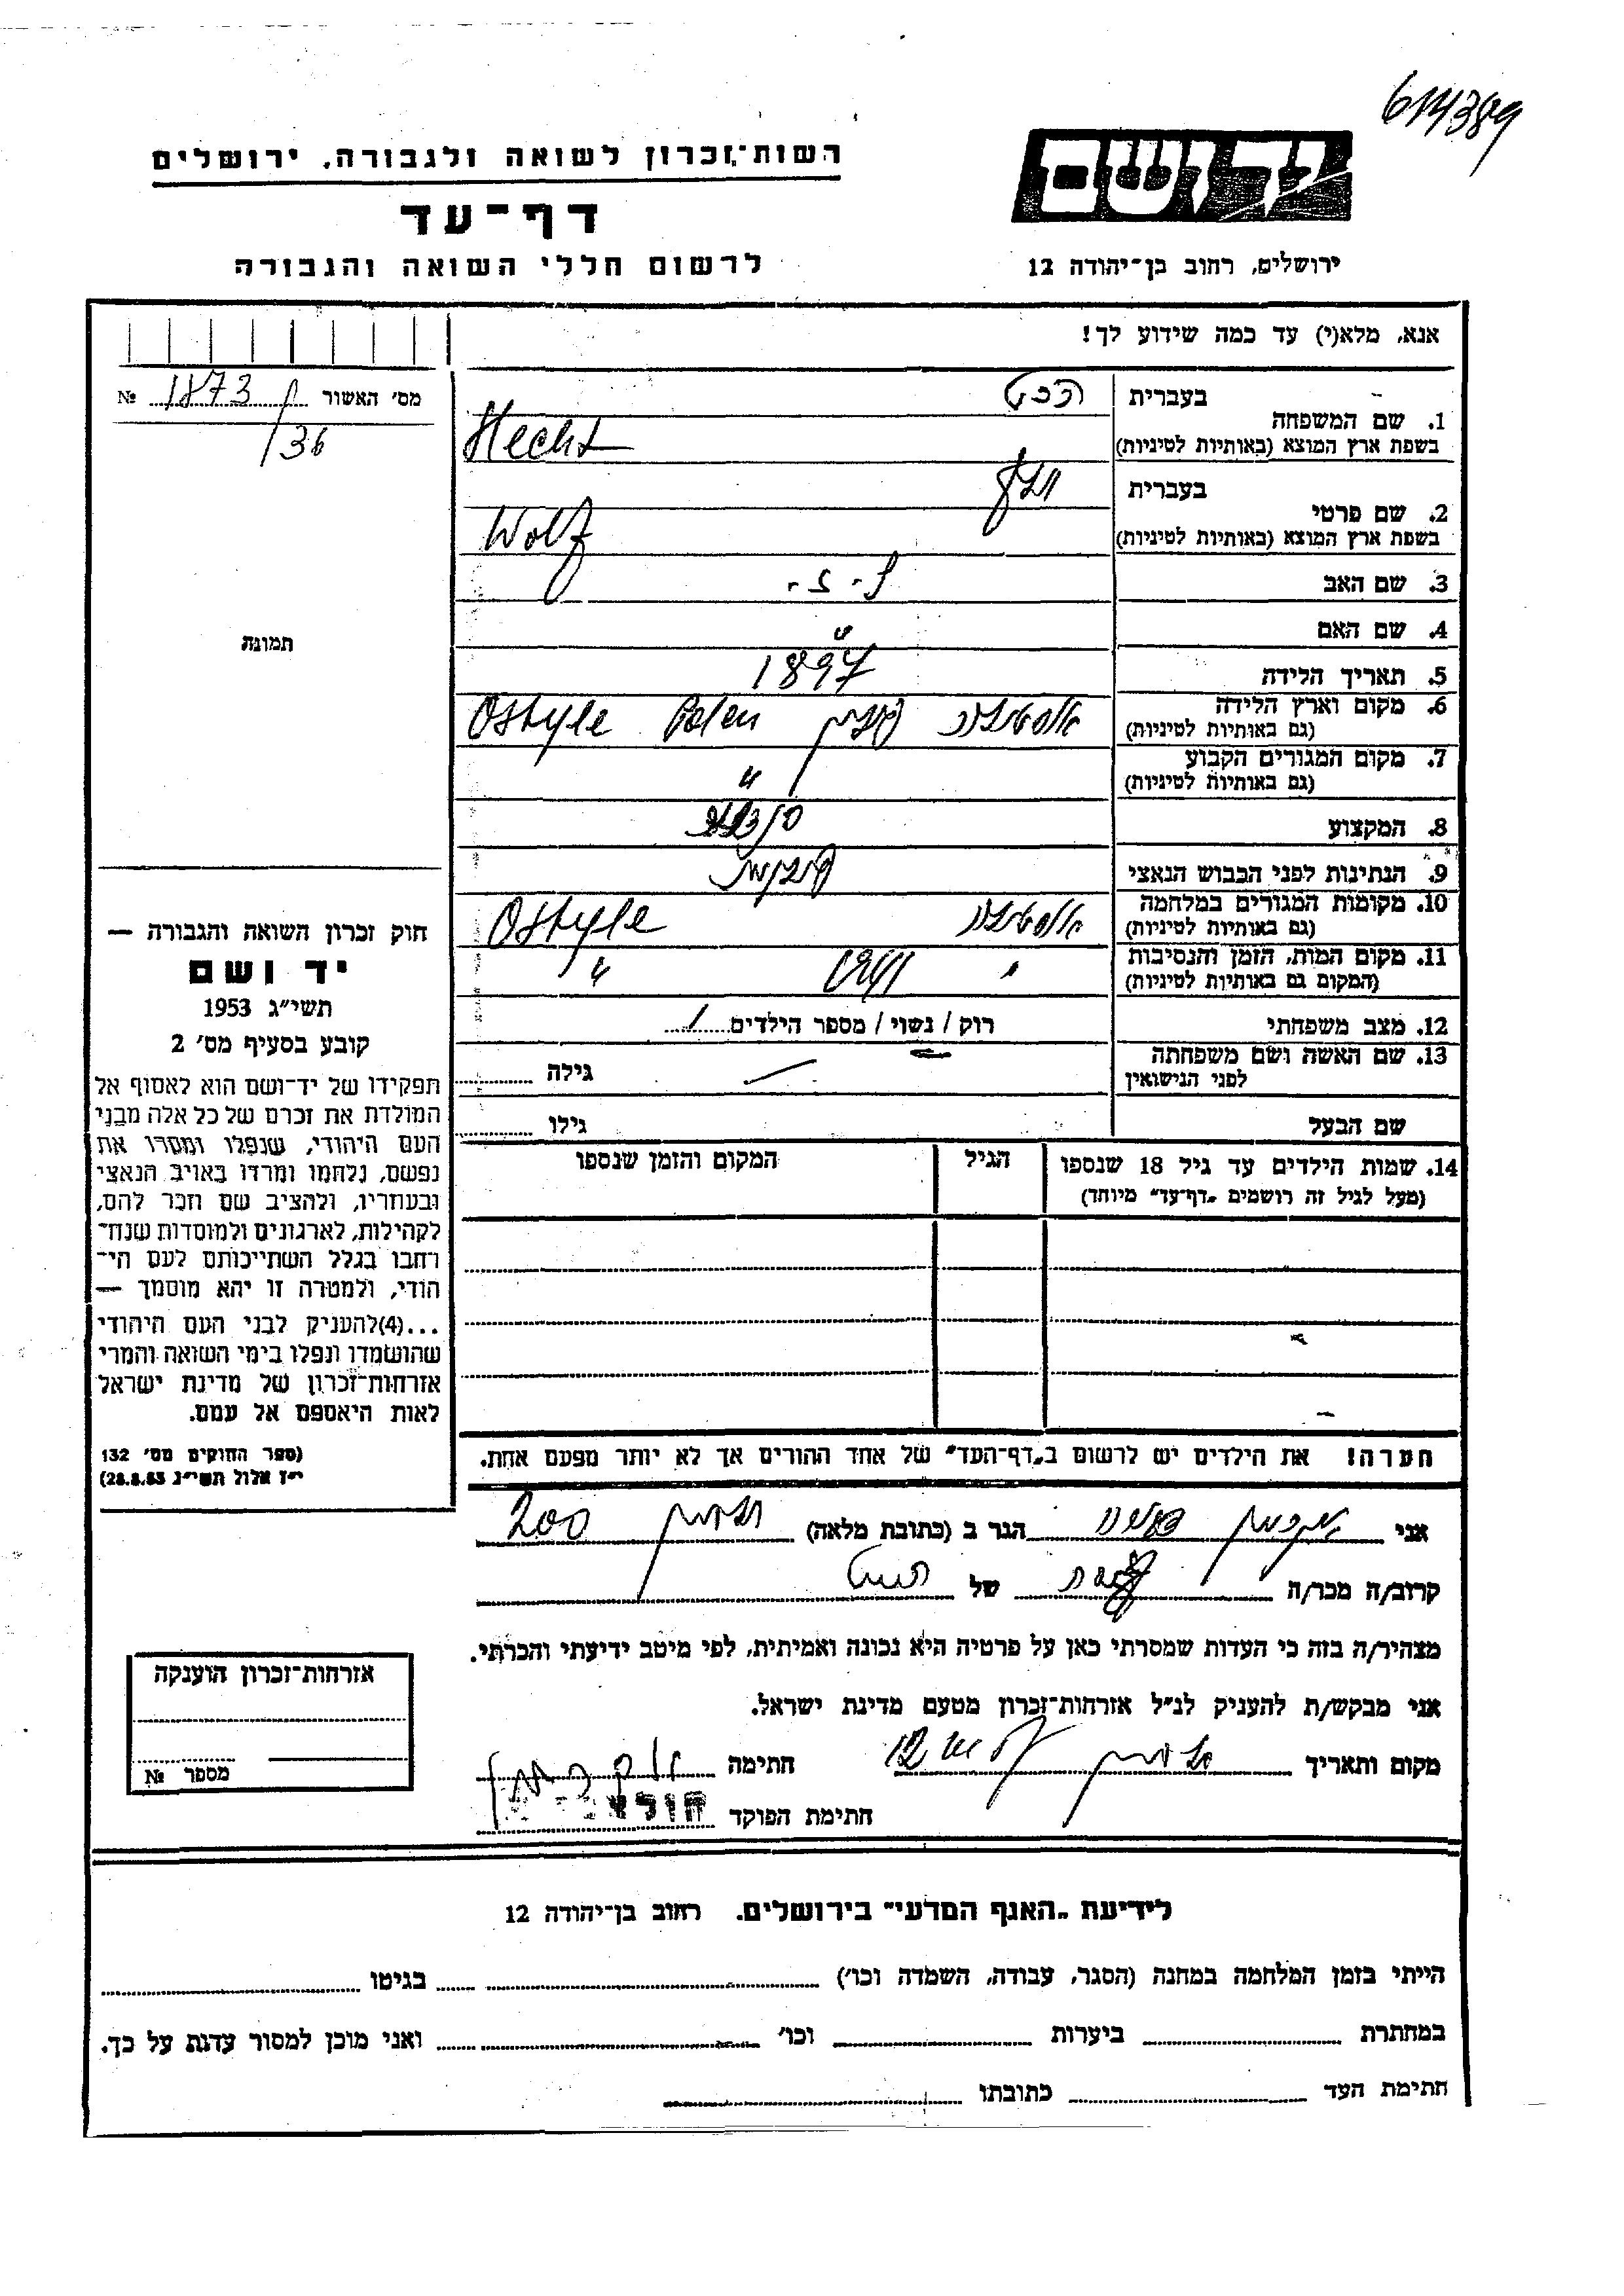 614389
יד ושם
ירושלים, רחוב בן־יהודה 12
רשות־זכרון לשואה ולגבורה, ירושלים
דף־עד
לרשום חללי השואה והגבורה
אנא, מלא(י) עד כמה שידוע לך!
מס׳ האשור 1873 №
/36
תמונה
1. שם המשפחה בעברית הכט
בשפת ארץ המוצא (באותיות לטיניות) Hecht
2. שם פרטי בעברית וולף
בשפת ארץ המוצא (באותיות לטיניות) Wolf
3. שם האב ל.י.
4. שם האם "
5. תאריך הלידה 1897
6. מקום וארץ הלידה (גם באותיות לטיניות) פולין Ostyle Polen
7. מקום המגורים הקבוע (גם באותיות לטיניות) "
8. המקצוע
9. הנתינות לפני הכבוש הנאצי
10. מקומות המגורים במלחמה (גם באותיות לטיניות) Ostyle
11. מקום המות, הזמן והנסיבות (המקום גם באותיות לטיניות) " 1941 "
12. מצב משפחתי רוק / נשוי / מספר הילדים 1
13. שם האשה ושם משפחתה לפני הנישואין גילה
שם הבעל גילו
14. שמות הילדים עד גיל 18 שנספו (מעל לגיל זה רושמים „דף־עד״ מיוחד) הגיל המקום והזמן שנספו
הערה! את הילדים יש לרשום ב„דף־העד״ של אחד ההורים אך לא יותר מפעם אחת.
חוק זכרון השואה והגבורה —
יד ושם
תשי״ג 1953
קובע בסעיף מס׳ 2
תפקידו של יד־ושם הוא לאסוף אל
המולדת את זכרם של כל אלה מבני
העם היהודי, שנפלו ומסרו את
נפשם, נלחמו ומרדו באויב הנאצי
ובעוזריו, ולהציב שם וזכר להם,
לקהילות, לארגונים ולמוסדות שנח־
רחבו בגלל השתייכותם לעם הי־
הודי, ולמטרה זו יהא מוסמך —
...(4)להעניק לבני העם היהודי
שהושמדו ונפלו בימי השואה והמרי
אזרחות־זכרון של מדינת ישראל
לאות היאספם אל עמם.
(ספר החוקים מס׳ 132
י״ז אלול תשי״ג 28.8.53)
אני הגר ב (כתובת מלאה) 200
קרוב/ה מכר/ה של
מצהיר/ה בזה כי העדות שמסרתי כאן על פרטיה היא נכונה ואמיתית, לפי מיטב ידיעתי והכרתי.
אני מבקש/ת להעניק לנ״ל אזרחות־זכרון מטעם מדינת ישראל.
מקום ותאריך חתימה
חתימת הפוקד
אזרחות־זכרון הוענקה
מספר №
לידיעת „האגף המדעי״ בירושלים. רחוב בן־יהודה 12
הייתי בזמן המלחמה במחנה (הסגר, עבודה, השמדה וכו׳) בגיטו
במחתרת ביערות וכו׳ ואני מוכן למסור עדות על כך.
חתימת העד כתובתו